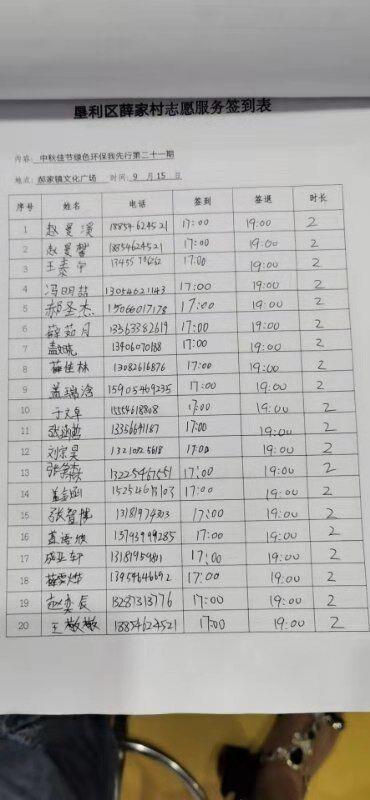 垦利区薛家村志愿服务签到表
内容: 中秋佳节绿色环保我先行第二十一期
地点: 郝家镇文化广场 时间: 9 月 15 日
序号 姓名 电话 签到 签退 时长
1 赵曼溪 18854624521 17:00 19:00 2
2 赵曼馨 18854624521 17:00 19:00 2
3 王泰宁 17:00 19:00 2
4 冯明喆 13054621143 17:00 19:00 2
5 郝圣杰 15066017178 17:00 19:00 2
6 薛茹月 13563382619 17:00 19:00 2
7 13406070188 17:00 19:00 2
8 薛佳林 13082616876 17:00 19:00 2
9 盖瑞涵 15905469235 17:00 19:00 2
10 于文卓 15554618808 17:00 19:00 2
11 17:00 19:00 2
12 刘宗昊 17:00 19:00 2
13 17:00 19:00 2
14 17:00 19:00 2
15 张智博 13181974303 17:00 19:00 2
16 17:00 19:00 2
17 成亚轩 17:00 19:00 2
18 13954646692 17:00 19:00 2
19 赵奕辰 17:00 19:00 2
20 王敬敬 18854624521 17:00 19:00 2